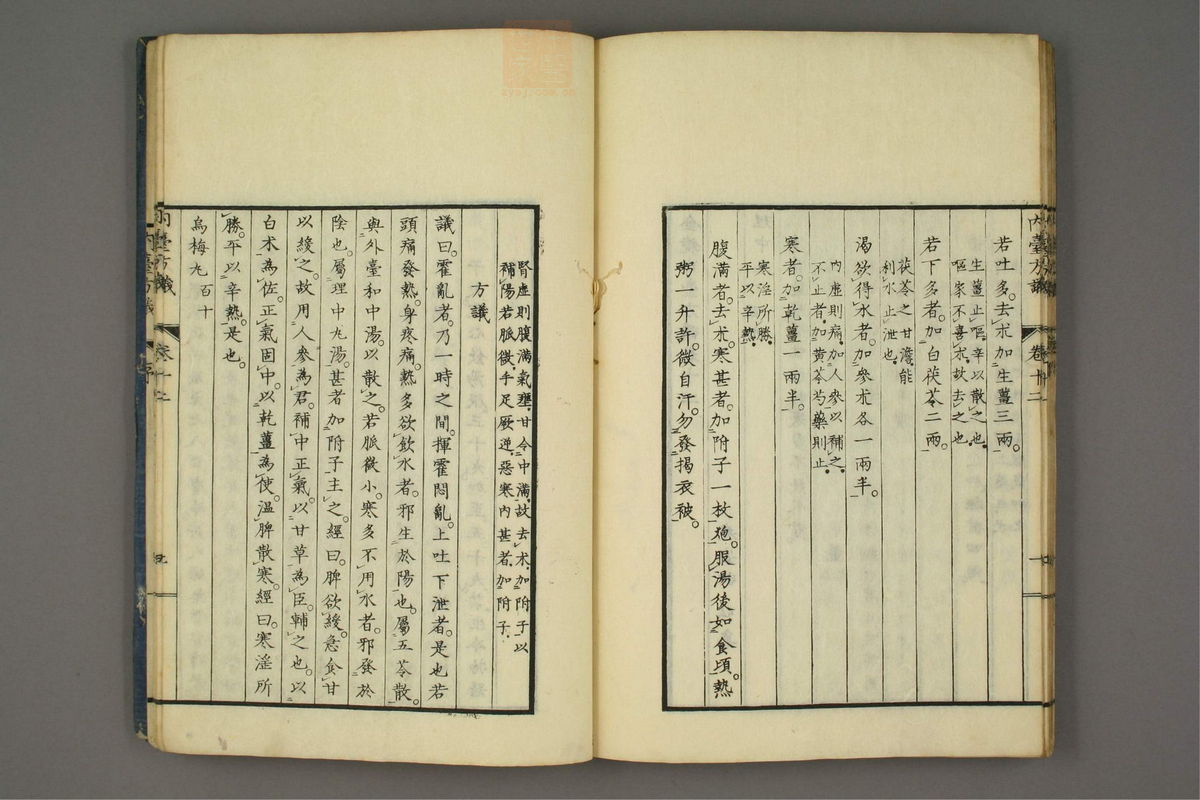 內臺方議 卷十二
若吐多。去朮加生薑三兩。
生薑止嘔。辛以散之也。
嘔家不喜朮。故去之也
若下多者。加白茯苓二兩。
茯苓之甘澹。能
利水止泄也。
渴欲得水者。加參朮各一兩半。
內虛則痛。加人參以補之。
不止者。加黃芩芍藥則止。
寒者。加乾薑一兩半。
寒淫所勝。
平以辛熱。
腹滿者。去朮。寒甚者。加附子一枚炮。服湯後如食頃。熱
粥一升許。微自汗。勿發揭衣被。
腎虛則腹滿氣壅。甘令中滿。故去朮。加附子以
補陽若脈微。手足厥逆。惡寒內甚者。加附子。
方議
議曰。霍亂者。乃一時之間。揮霍悶亂。上吐下泄者。是也若
頭痛發熱。身疼痛。熱多欲飲水者。邪生於陽也。屬五苓散。
與外臺和中湯。以散之。若脈微小。寒多不用水者。邪發於
陰也。屬理中丸湯。甚者加附子主之。經曰。脾欲緩。急食甘
以緩之。故用人參為君。補中正氣。以甘草為臣。輔之也。以
白朮為佐。正氣固中。以乾薑為使。溫脾散寒。經曰。寒淫所
勝。平以辛熱。是也。
烏梅九百十
內臺方議 卷十二